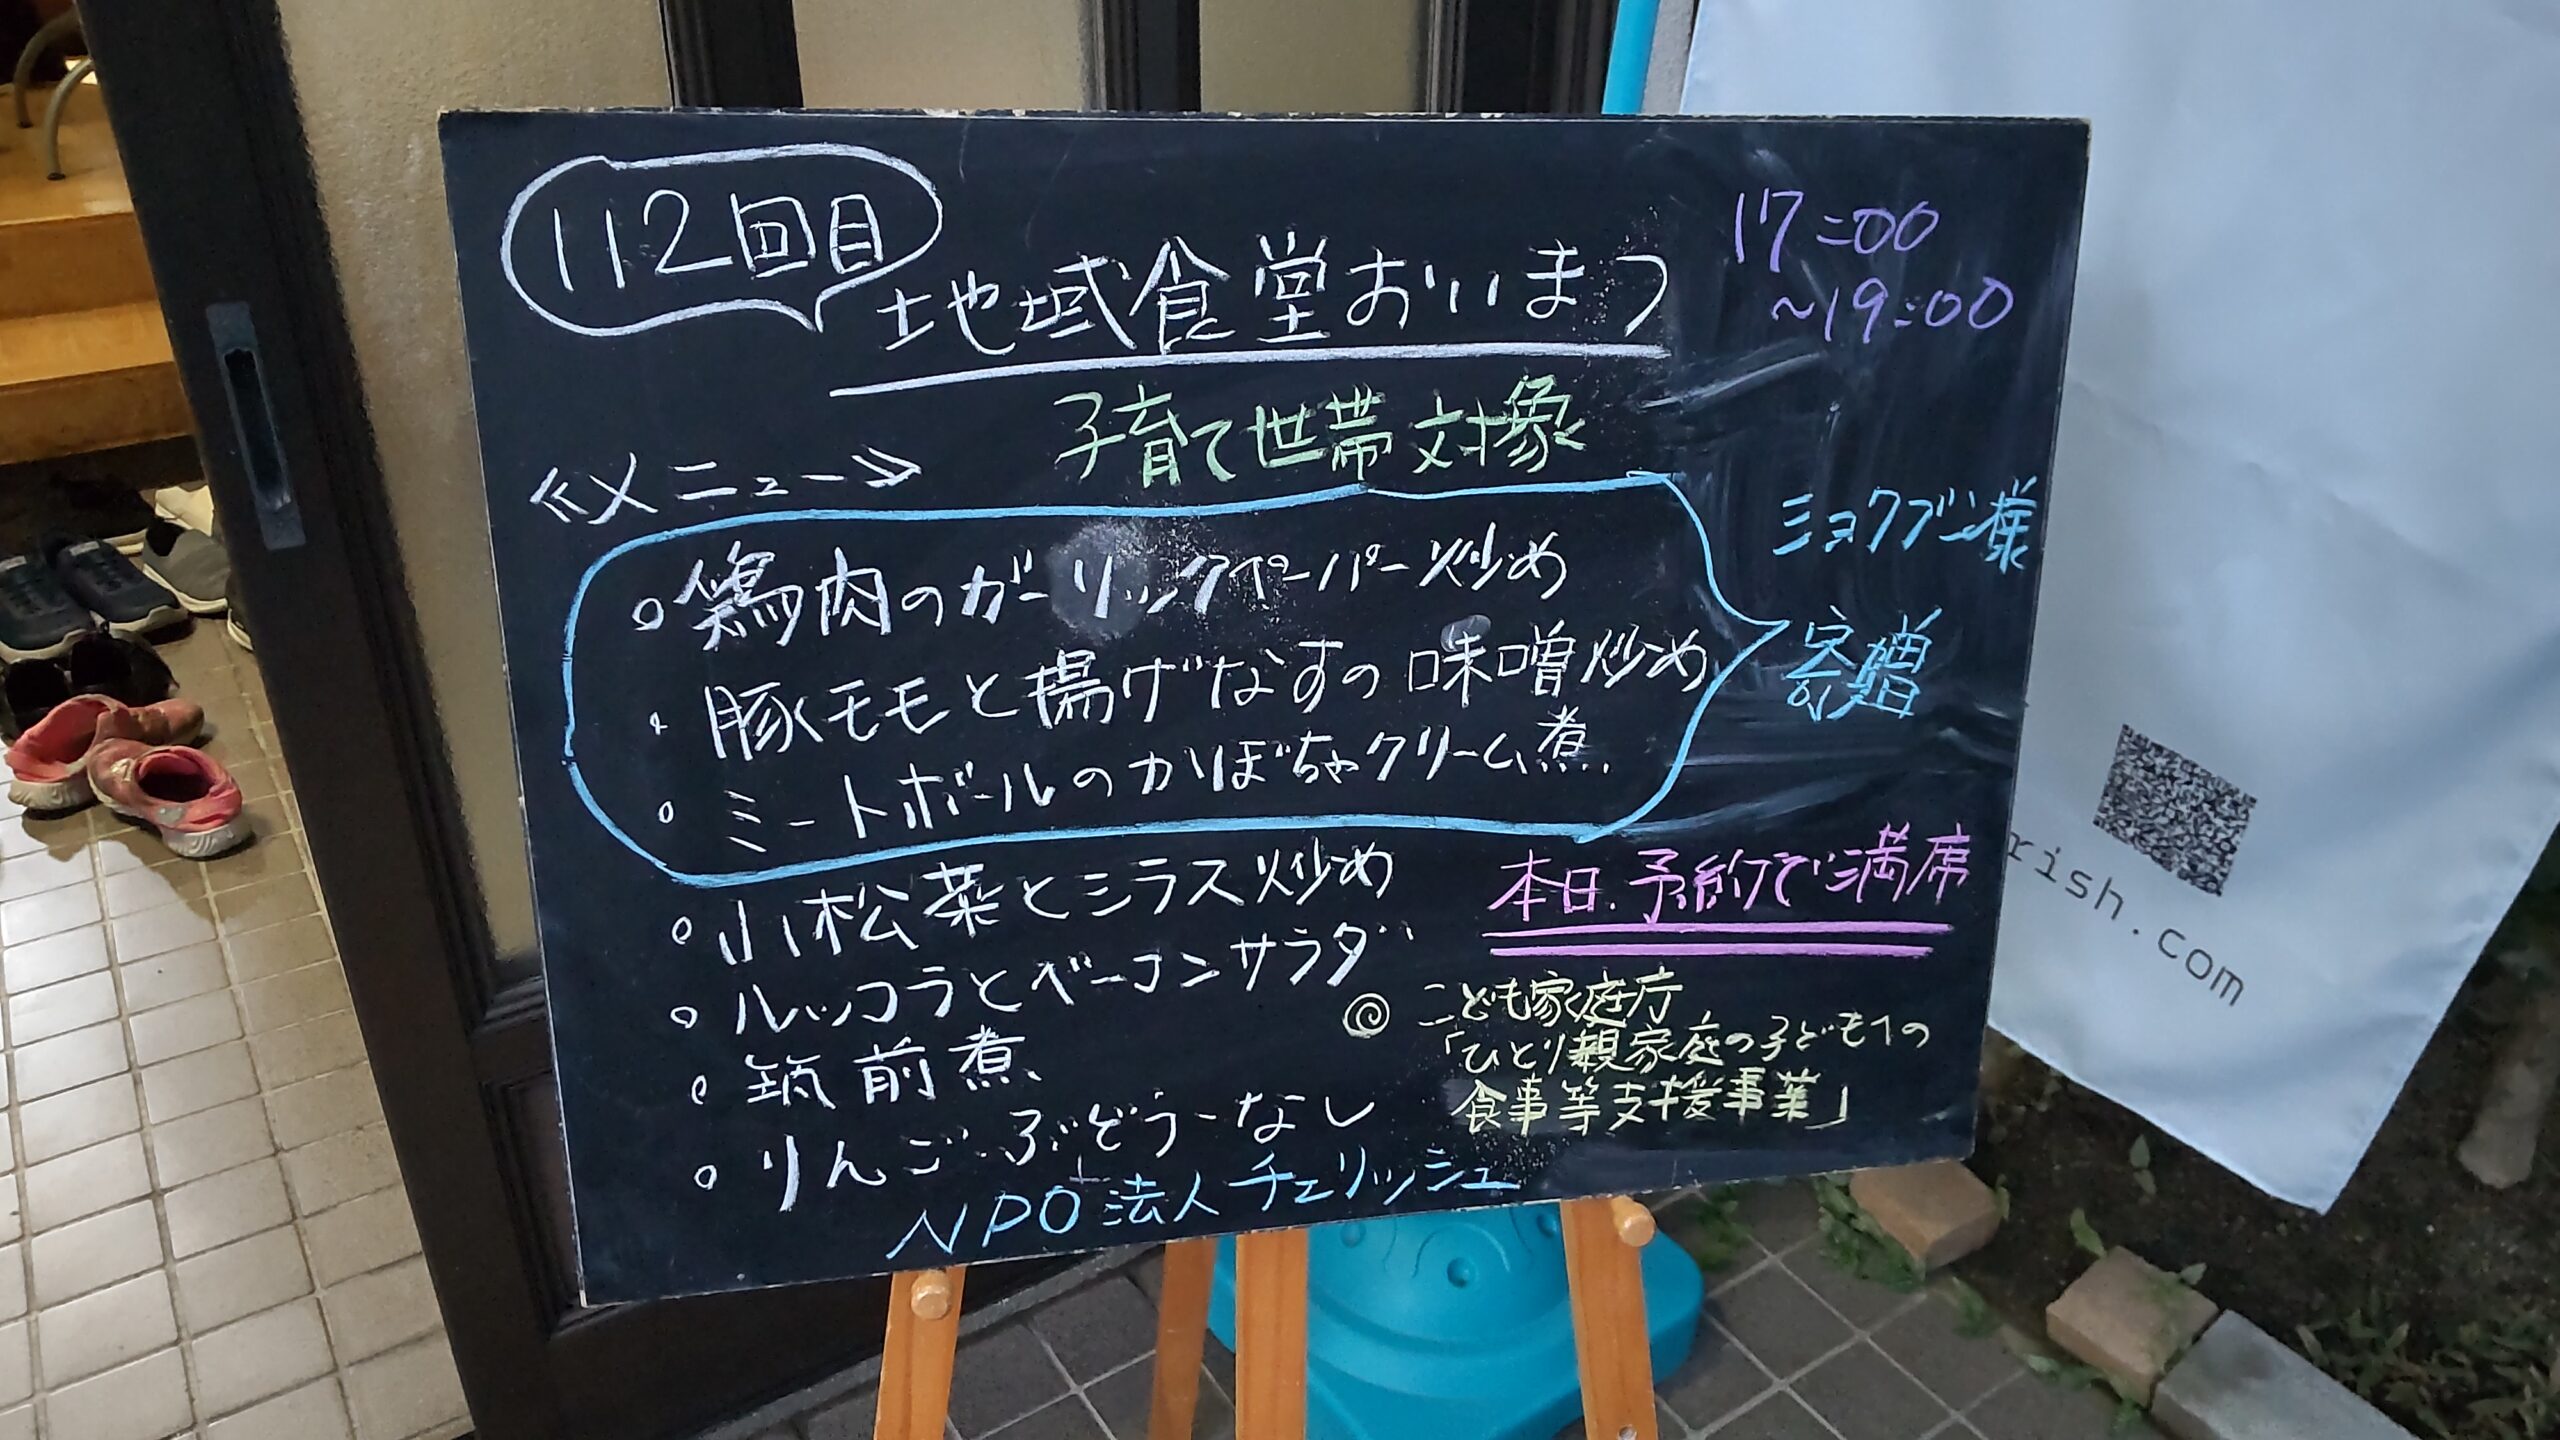 112回目
地域食堂おいまつ
17:00
~19:00
子育て世帯対象
≪メニュー≫
。鶏肉のガーリックペーパー炒め
・豚モモと揚げなすの味噌炒め
。ミートボールのかぼちゃクリーム煮
ショクブン様
寄贈
。小松菜とシラス炒め
。ルッコラとベーコンサラダ
。筑前煮
。りんご・ぶどう・なし
本日.予約で満席
◎こども家庭庁
「ひとり親家庭の子ども等の
食事等支援事業」
NPO法人チェリッシュ
rish.com